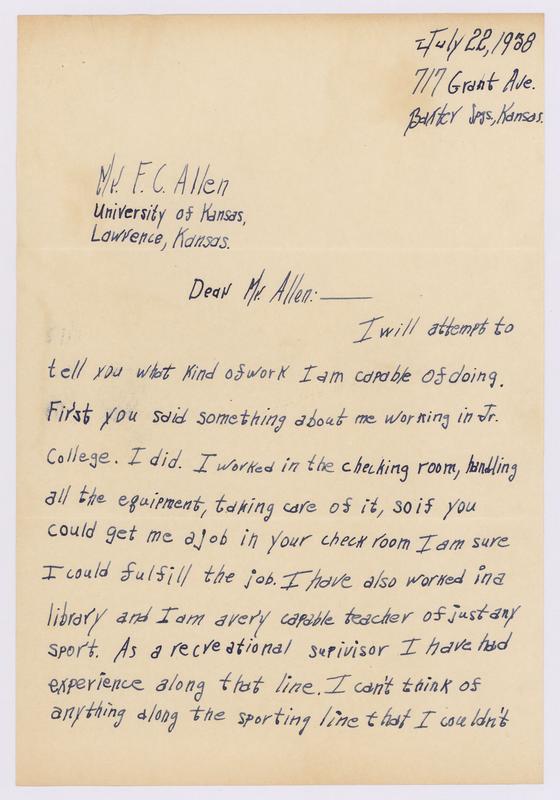 July 22, 1938
717 Grant Ave.
Baxter Spgs., Kansas.
Mr. F. C. Allen
University of Kansas,
Lawrence, Kansas.
Dear Mr. Allen:—
I will attempt to
tell you what kind of work I am capable of doing.
First you said something about me working in Jr.
College. I did. I worked in the checking room, handling
all the equipment, taking care of it, so if you
could get me a job in your check room I am sure
I could fulfill the job. I have also worked in a
library and I am a very capable teacher of just any
sport. As a recreational supivisor I have had
experience along that line. I can't think of
anything along the sporting line that I couldn't